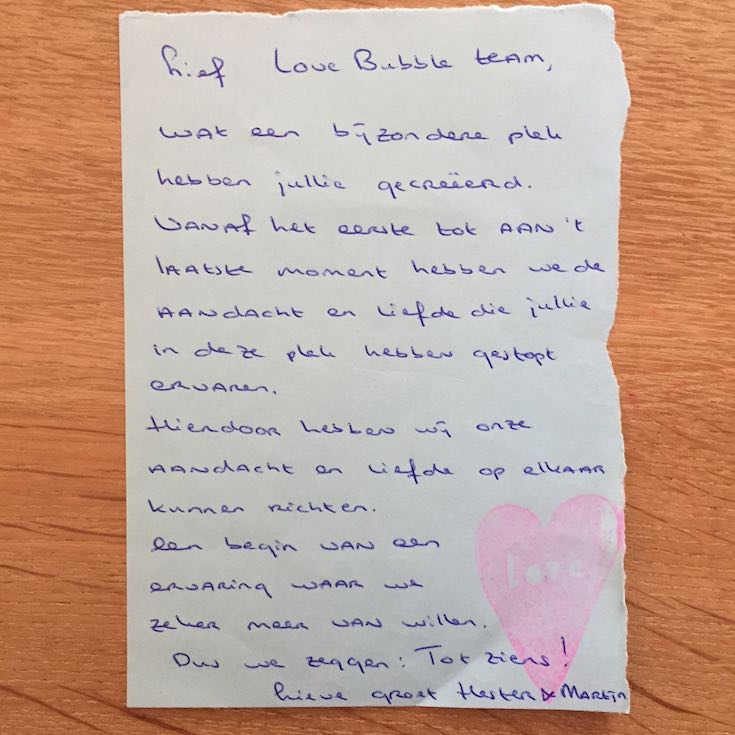 Lief Love Bubble team,
Wat een bijzondere plek
hebben jullie gecreëerd.
Vanaf het eerste tot aan 't
laatste moment hebben we de
aandacht en liefde die jullie
in deze plek hebben gestopt
ervaren.
Hierdoor hebben wij onze
aandacht en liefde op elkaar
kunnen richten.
Een begin van een
ervaring waar we
zeker meer van willen.
Dus we zeggen: Tot ziens!
Lieve groet Hester & Martijn
love